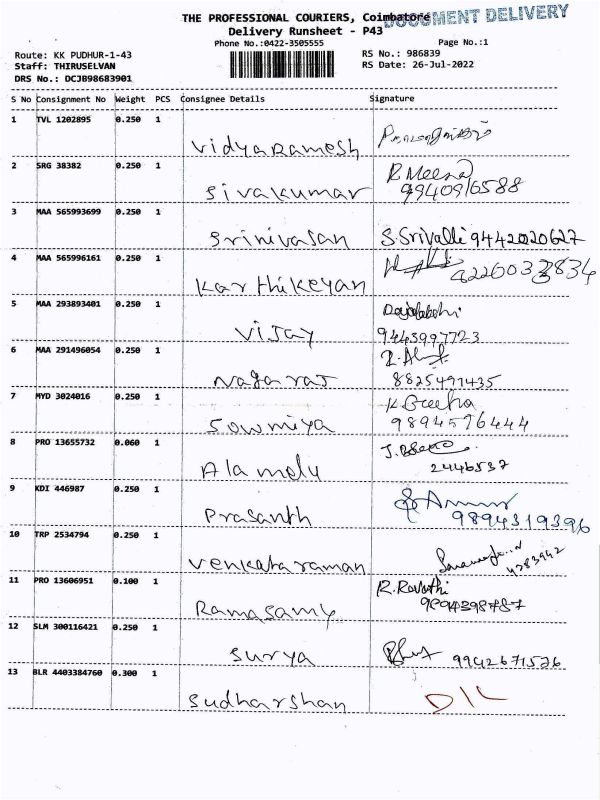 THE PROFESSIONAL COURIERS, Coimbatore
DOCUMENT DELIVERY
Delivery Runsheet - P43
Phone No.:0422-3505555
Page No.:1
Route: KK PUDHUR-1-43
RS No.: 986839
Staff: THIRUSELVAN
RS Date: 26-Jul-2022
DRS No.: DCJB98683901
S No Consignment No Weight PCS Consignee Details Signature
1 TVL 1202895 0.250 1
Vidyaramesh
2 SRG 38382 0.250 1 R. Meena
Sivakumar 9940916588
3 MAA 565993699 0.250 1
Srinivasan S. Srivalli 9442020627
4 MAA 565996161 0.250 1
Karthikeyan
5 MAA 293893401 0.250 1
Vijay 9443997723
6 MAA 291496054 0.250 1
Nagaraj 8825491435
7 MYD 3024016 0.250 1 K. Geetha
Sowmiya 9894576444
8 PRO 13655732 0.060 1
Alamelu 2446537
9 KDI 446987 0.250 1
Prasanth 9894319396
10 TRP 2534794 0.250 1
Venkataraman 4283942
11 PRO 13606951 0.100 1 R. Revathi
Ramasamy
12 SLM 300116421 0.250 1
Surya 9942671526
13 BLR 4403384760 0.300 1
Sudharshan D/L